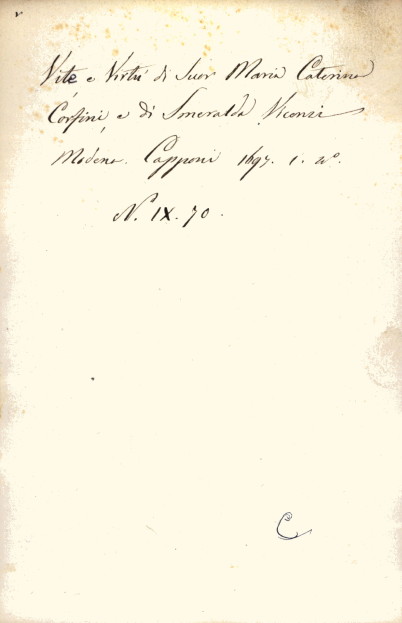 Vite e Virtù di Suor Maria Caterina
Corsini, e di Smeralda Viconzi
Modena. Capponi 1697. 1. 4º.
N. IX. 70.
C